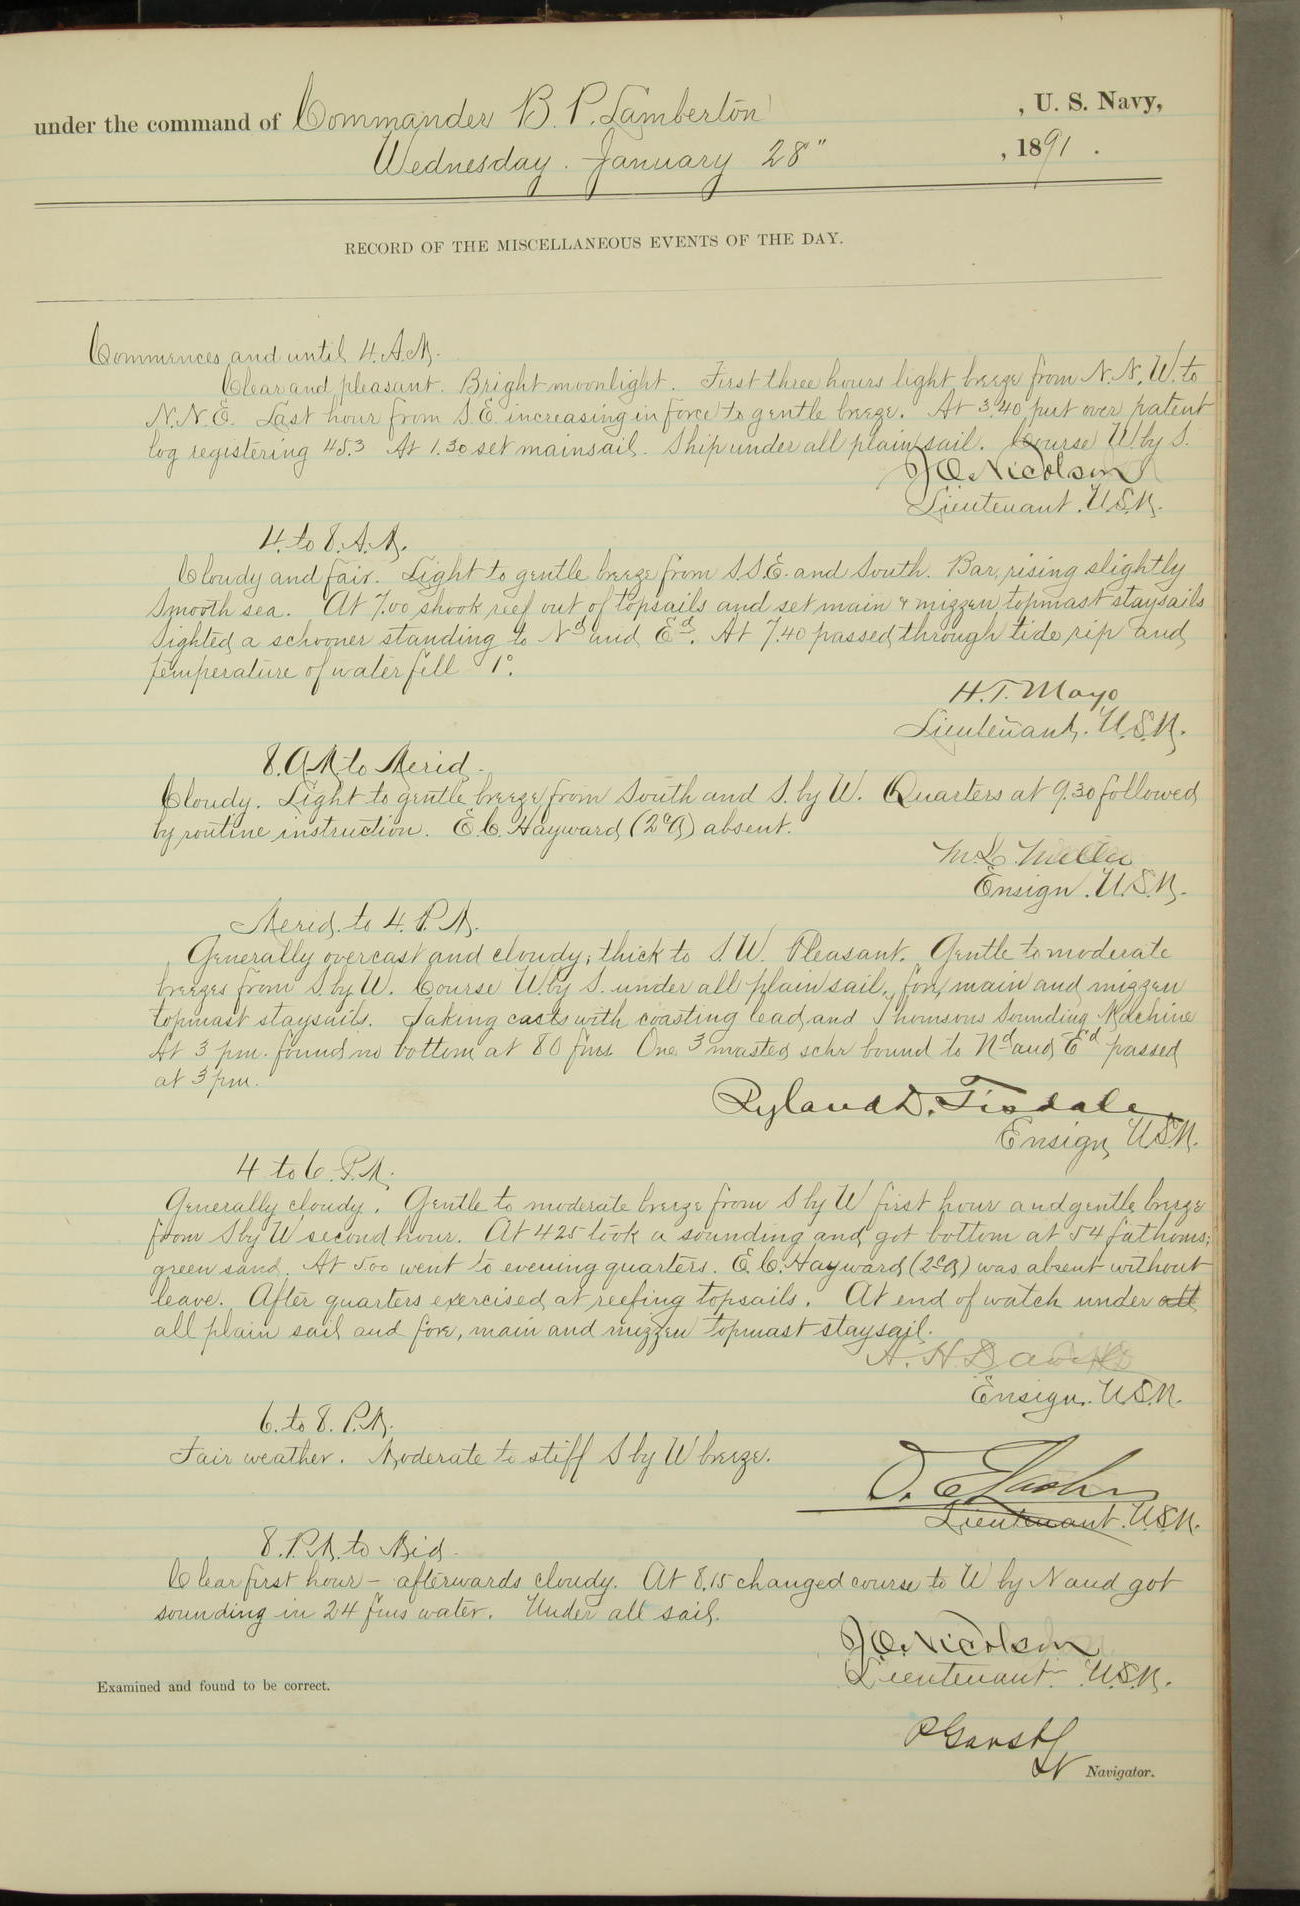 under the command of Commander B. P. Lamberton , U. S. Navy,
Wednesday. January 28" , 1891 .
RECORD OF THE MISCELLANEOUS EVENTS OF THE DAY.
Commences and until 4. A.M.
Clear and pleasant. Bright moonlight. First three hours light breeze from N.N.W. to
N.N.E. Last hour from S.E. increasing in force to gentle breeze. At 3.40 put over patent
log registering 45.3 At 1.30 set mainsail. Ship under all plain sail. Course W. by S.
J O. Nicolson
Lieutenant. U.S.N.
4. to 8. A.M.
Cloudy and fair. Light to gentle breeze from S.S.E. and South. Bar. rising slightly
Smooth sea. At 7.00 shook reef out of topsails and set main & mizzen topmast staysails
Sighted a schooner standing to Nd and Ed. At 7.40 passed through tide rip and
temperature of water fell 1°.
H. T. Mayo
Lieutenant. U.S.N.
8. AM to Merid.
Cloudy. Light to gentle breeze from South and S. by W. Quarters at 9.30 followed
by routine instruction. E.C. Hayward (2cA) absent.
M. L. Miller
Ensign. U.S.N.
Merid. to 4. P.M.
Generally overcast and cloudy; thick to S.W. Pleasant. Gentle to moderate
breezes from S. by W. Course W. by S. under all plain sail, fore, main and mizzen
topmast staysails. Taking casts with coasting lead and Thomsons Sounding Machine
At 3 pm. found no bottom at 80 fms. One 3 masted schr bound to Nd and Ed passed
at 3 pm.
Ryland D. Tisdale
Ensign, U.S.N.
4 to 6. P.M.
Generally cloudy. Gentle to moderate breeze from S by W first hour and gentle breeze
from S by W second hour. At 4 25 took a sounding and got bottom at 54 fathoms;
green sand. At 5.00 went to evening quarters. E.C. Hayward (2cA) was absent without
leave. After quarters exercised at reefing topsails. At end of watch under all
all plain sail and fore, main and mizzen topmast staysail.
Ensign. U.S.N.
6. to 8. P.M.
Fair weather. Moderate to stiff S by W breeze.
Lieutenant. U.S.N.
8. P.M. to Mid.
Clear first hour – afterwards cloudy. At 8.15 changed course to W by N and got
sounding in 24 fms water. Under all sail.
J O. Nicolson
Lieutenant U.S.N.
Examined and found to be correct.
P Garst
Lt Navigator.